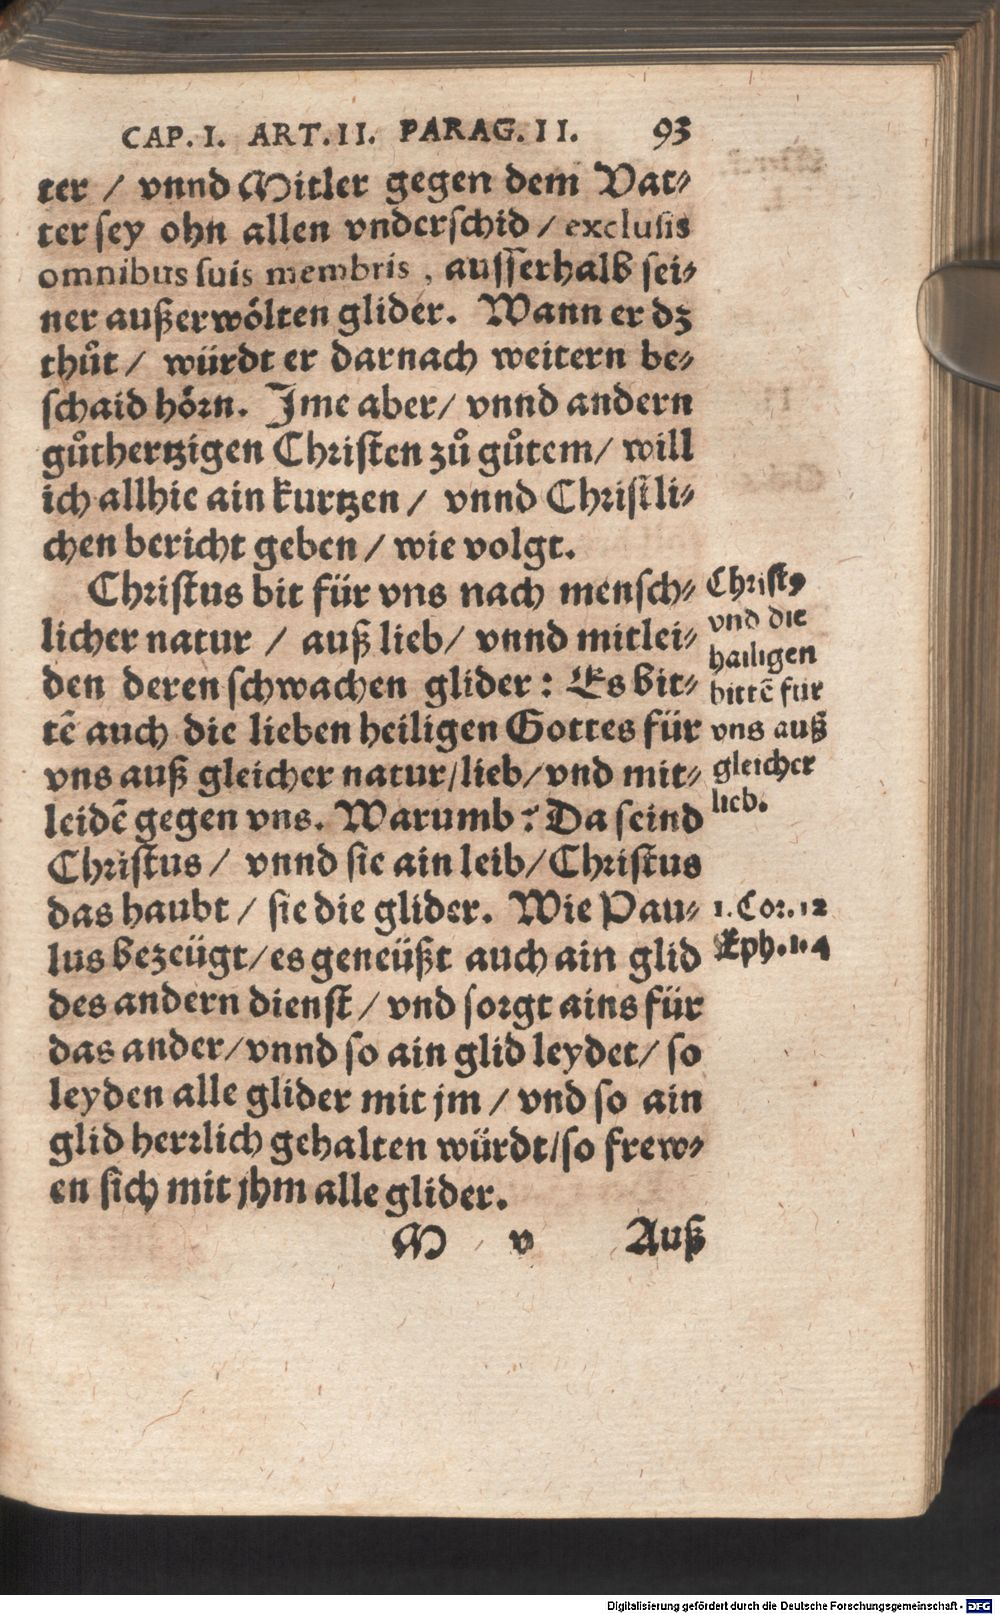 CAP. I. ART. II. PARAG. II. 93
ter / vnnd Mitler gegen dem Vat⸗
ter sey ohn allen vnderschid / exclusis
omnibus suis membris, ausserhalb sei⸗
ner außerwoͤlten glider. Wann er dz
thuͦt / würdt er darnach weitern be⸗
schaid hoͤrn. Ime aber / vnnd andern
guͦthertzigen Christen zuͦ guͦtem / will
ich allhie ain kurtzen / vnnd Christli⸗
chen bericht geben / wie volgt.
Christus bit für vns nach mensch⸗
licher natur / auß lieb / vnnd mitlei⸗
den deren schwachen glider: Es bit⸗
tẽ auch die lieben heiligen Gottes für
vns auß gleicher natur / lieb / vnd mit⸗
leidẽ gegen vns. Warumb? Da seind
Christus / vnnd sie ain leib / Christus
das haubt / sie die glider. Wie Pau⸗
lus bezeügt / es geneüßt auch ain glid
des andern dienst / vnd sorgt ains für
das ander / vnnd so ain glid leydet / so
leyden alle glider mit jm / vnd so ain
glid herrlich gehalten würdt / so frew⸗
en sich mit jhm alle glider.
M v Auß
Christꝰ
vnd die
hailigen
bittẽ für
vns auß
gleicher
lieb.
1. Cor. 12
Eph. 1. 4
Digitalisierung gefördert durch die Deutsche Forschungsgemeinschaft - DFG